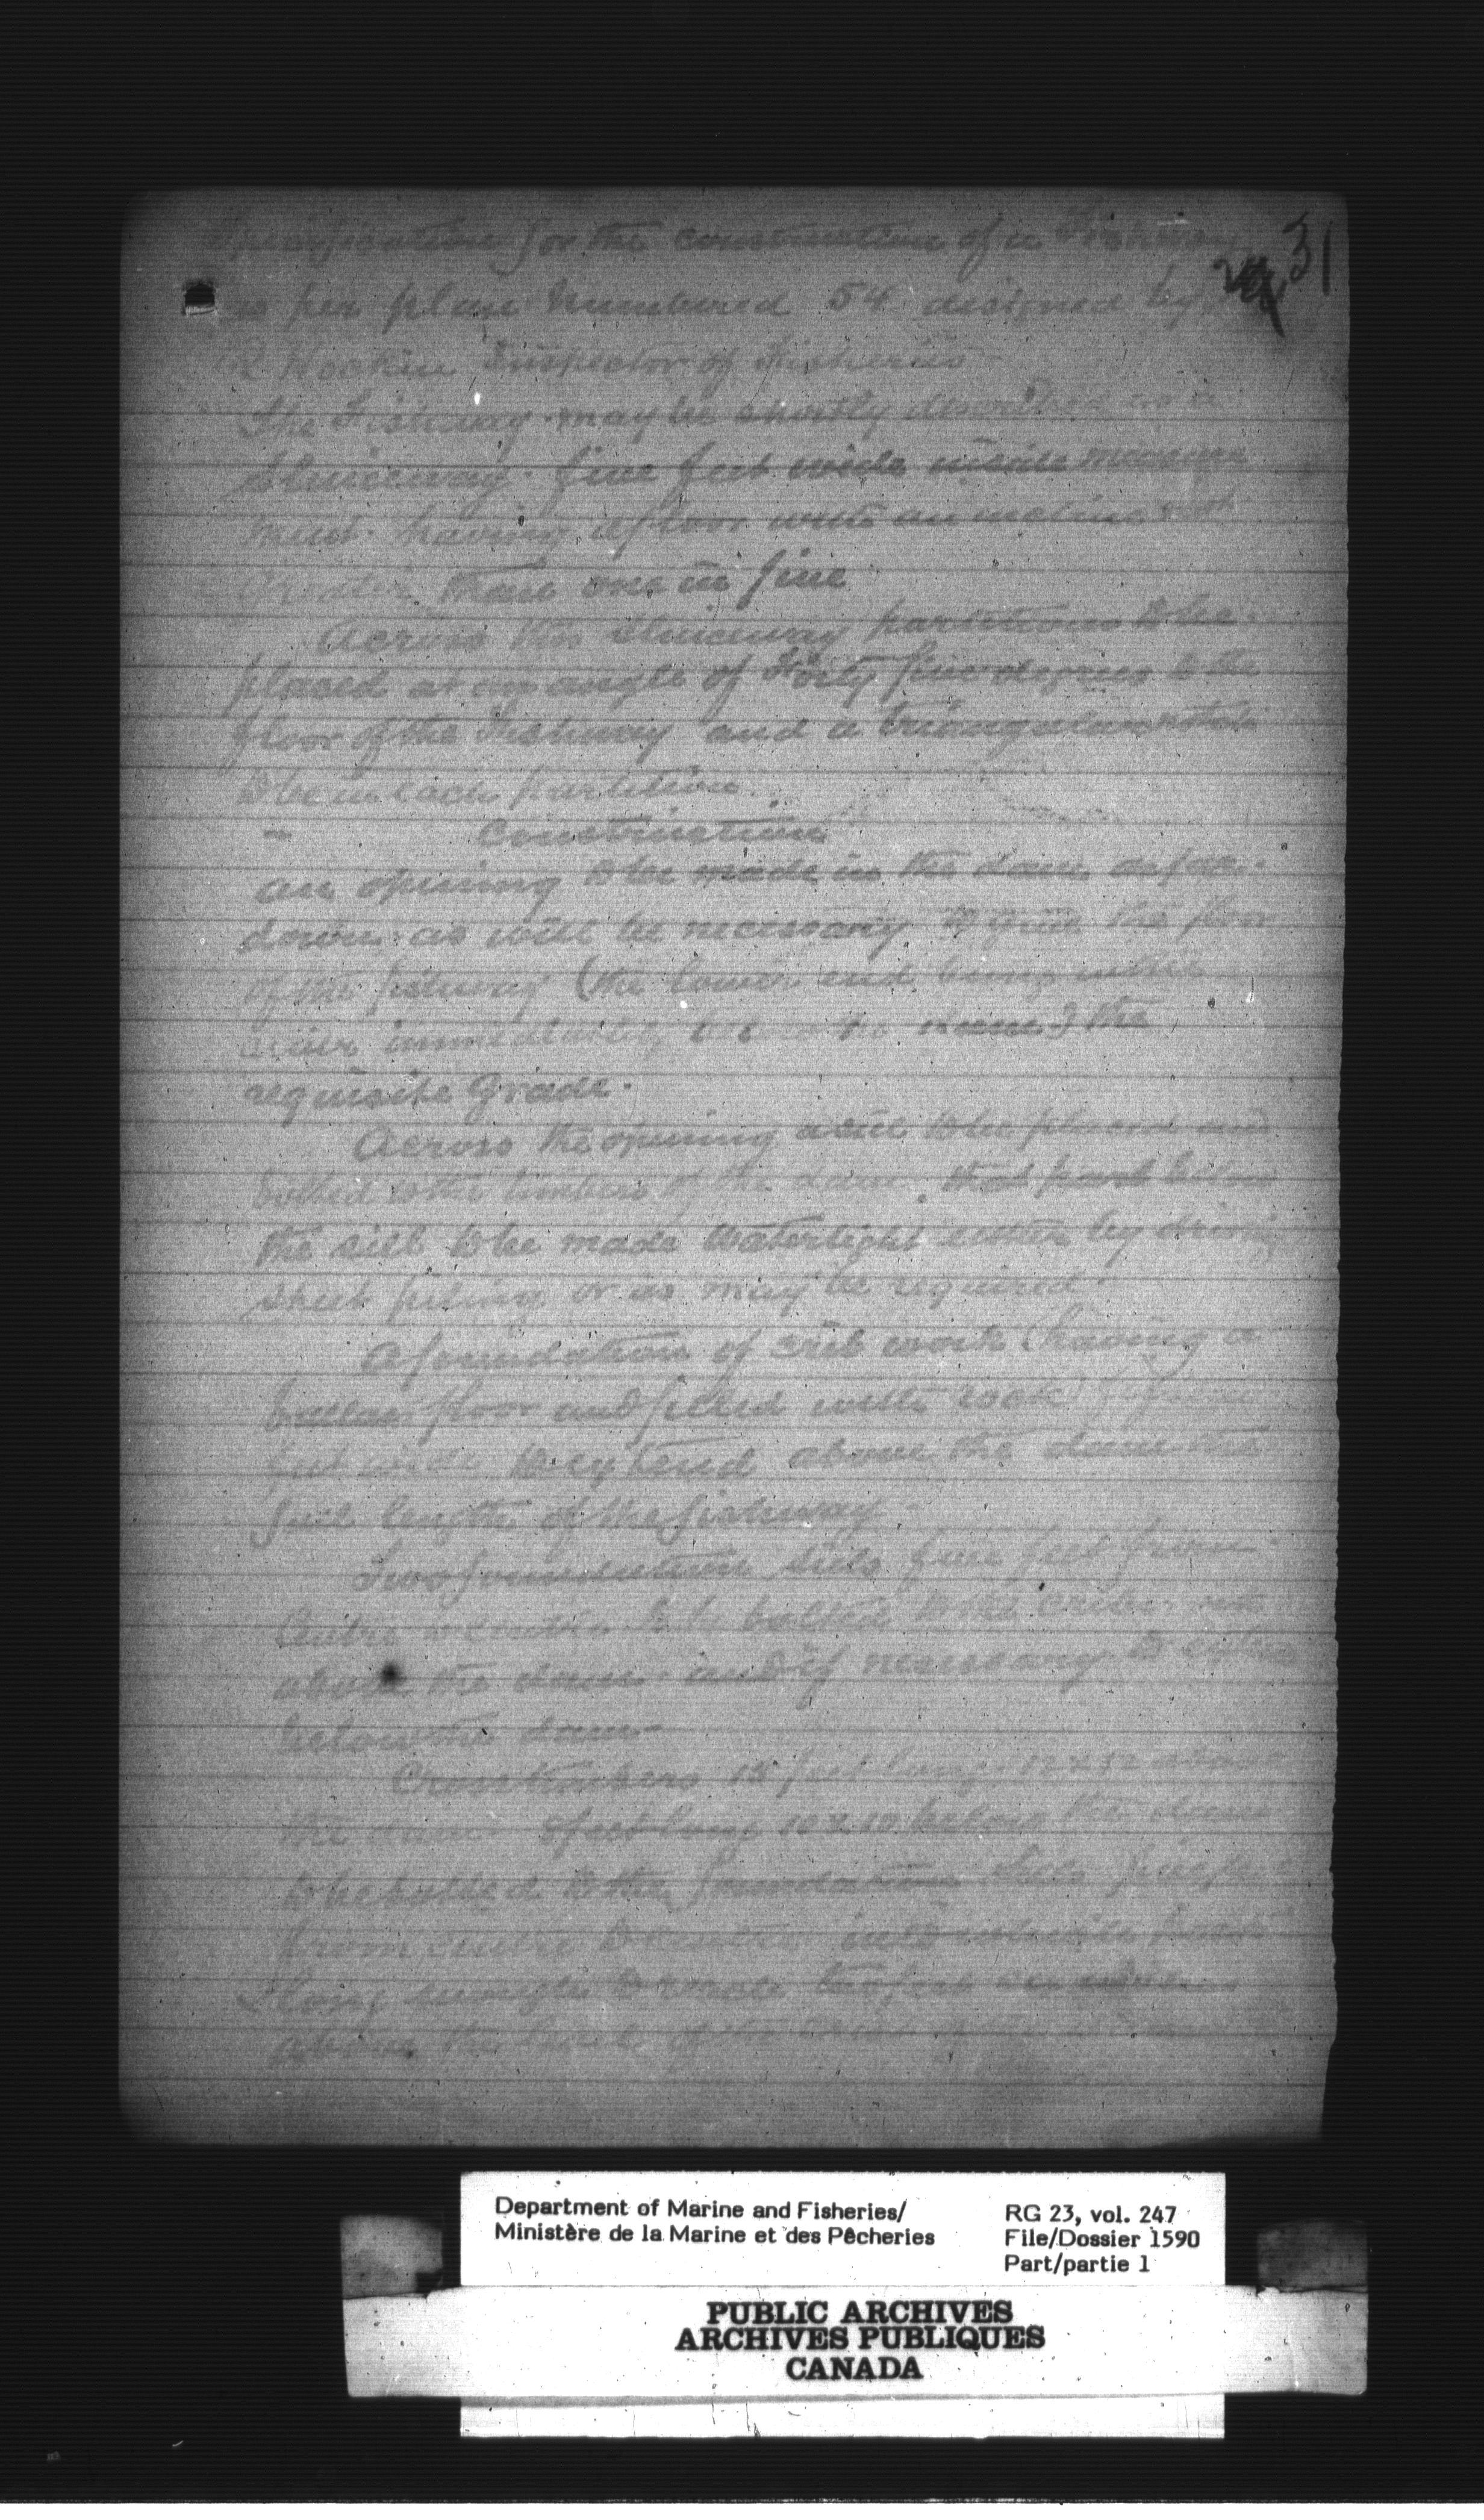 31
Specification for the construction of a Fishway
as per plan numbered 54 designed by
R Hockin Inspector of Fisheries
The Fishway may be shortly described as a
Sluiceway five feet wide inside measure
ment having a floor with an incline not
Greater than one in five
Across this sluiceway partitions to be
placed at an angle of Forty five degrees to the
floor of the Fishway and a triangular notch
to be in each partition.
Construction
an opening to be made in the dam as far
down as will be necessary to give the floor
of the fishway (the lower end being in the
river immediately below the dam) the
requisite Grade.
Across the opening a sill to be placed and
bolted to the timbers of the dam that part below
the sill to be made watertight either by driving
sheet piling or as may be required
A foundation of crib work (having a
ballast floor and filled with rock)
feet wide to extend above the dam the
full length of the fishway
Two foundation sills five feet from
Centre to centre to be bolted to the cribs
above the dam and if necessary to
below the dam
Cross timbers 15 feet long 12 x 12 above
the dam 8 feet long 10 x 10 below the dam
to be bolted to the foundation sills five feet
from centre to centre
long enough to reach two feet
above the
Department of Marine and Fisheries/
Ministère de la Marine et des Pêcheries
RG 23, vol. 247
File/Dossier 1590
Part/partie 1
PUBLIC ARCHIVES
ARCHIVES PUBLIQUES
CANADA